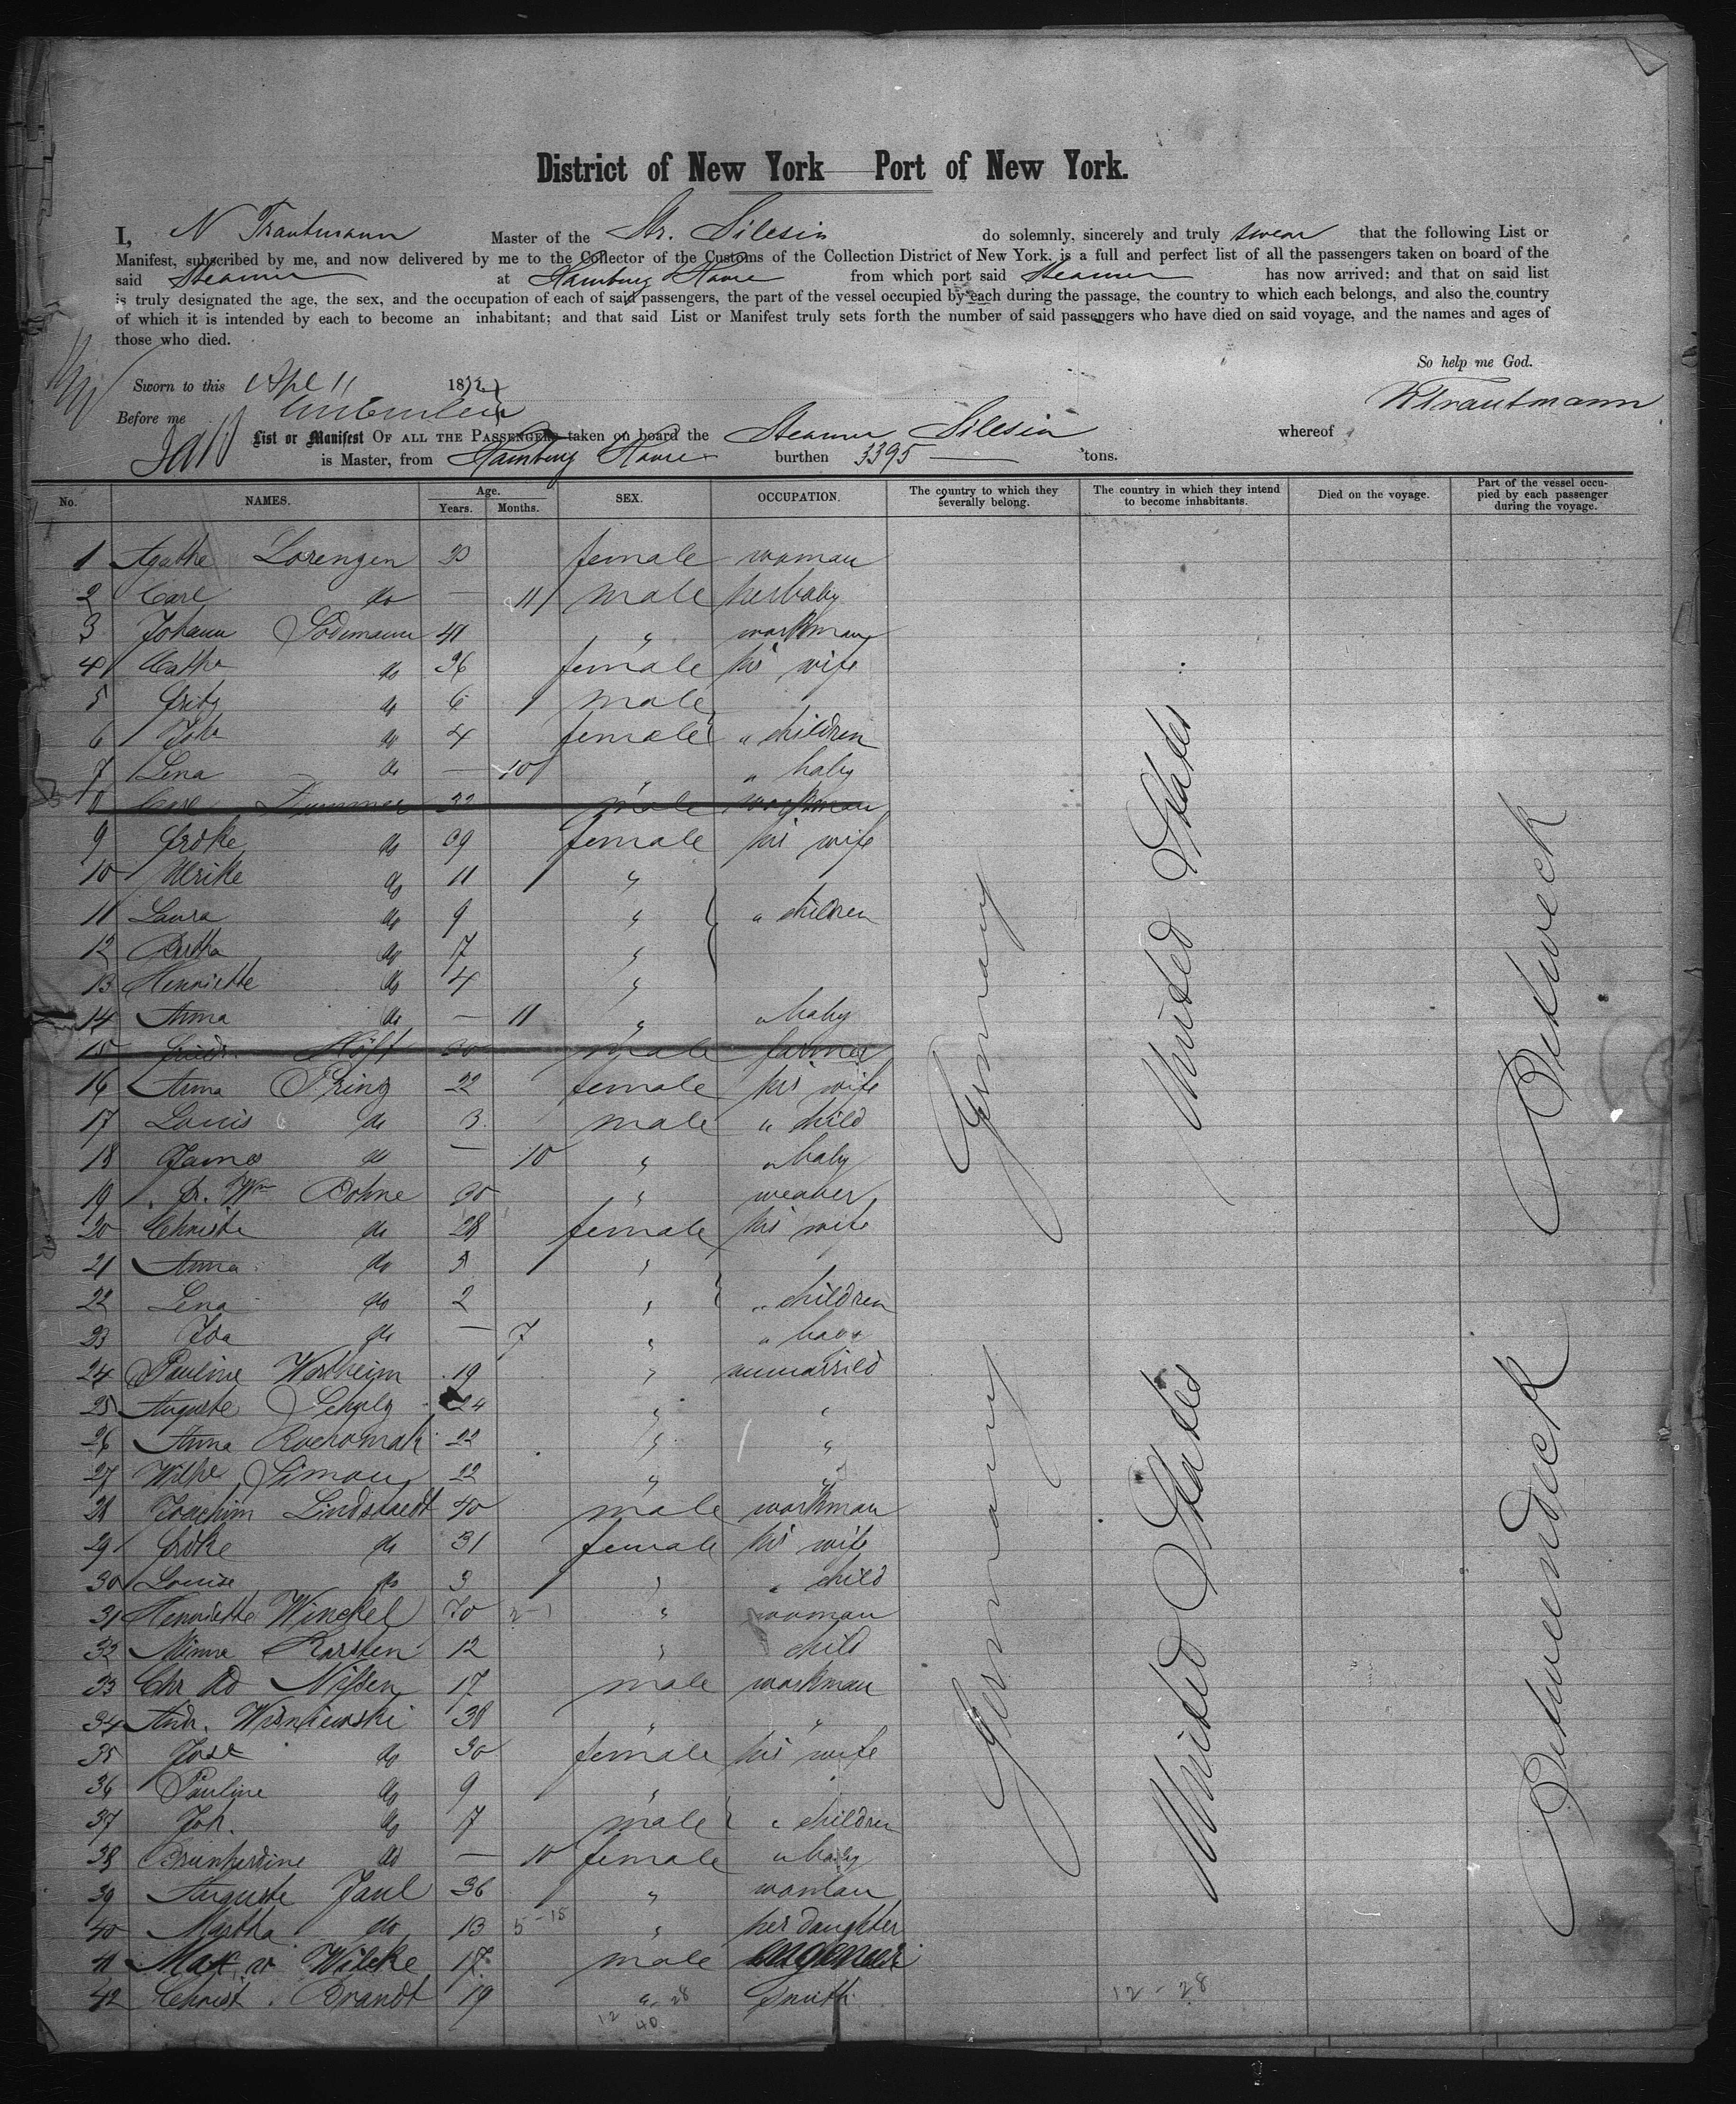 District of New York Port of New York.
I, N Trautmann Master of the Str. Silesia do solemnly, sincerely and truly swear that the following List or
Manifest, subscribed by me, and now delivered by me to the Collector of the Customs of the Collection District of New York, is a full and perfect list of all the passengers taken on board of the
said Steamer at Hamburg Havre from which port said Steamer has now arrived; and that on said list
is truly designated the age, the sex, and the occupation of each of said passengers, the part of the vessel occupied by each during the passage, the country to which each belongs, and also the country
of which it is intended by each to become an inhabitant; and that said List or Manifest truly sets forth the number of said passengers who have died on said voyage, and the names and ages of
those who died.
So help me God.
Sworn to this Apl 11 1872
NTrautmann
Before me
List or Manifest OF ALL THE PASSENGERS taken on board the Steamer Silesia whereof
is Master, from Hamburg Havre burthen 3395 tons.
No. NAMES. Age. Years. Months. SEX. OCCUPATION. The country to which they severally belong. The country in which they intend to become inhabitants. Died on the voyage. Part of the vessel occupied by each passenger during the voyage.
1 Agathe Lorenzen 30 female woman
2 Carl do — 11 male her baby
3 Johann Sodemann 41 " workman
4 Cathe do 36 female his wife
5 Fritz do 6 male
6 Joh do 4 female " children
7 Lena do — 10 " " baby
8 Carl Dummer 32 male workman
9 Frdke do 39 female his wife
10 Ulrike do 11 "
11 Laura do 9 " " children
12 Bertha do 7 "
13 Henriette do 4 "
14 Anna do — 11 " " baby
15 Friedr. 30 male farmer
16 Anna Prinz 22 female his wife
17 Louis do 3 male " child
18 James do — 10 " " baby
19 Fr. Wm Bohne 30 " weaver
20 Christe do 28 female his wife
21 Anna do 3 "
22 Lena do 2 " " children
23 Ida do — 7 " " baby
24 Pauline Wertheim 19 " unmarried
25 Auguste Schulz 24 " "
26 Anna 22 " "
27 Wilhe Simon 22 " "
28 Joachim Lindstaedt 40 male workman
29 Frdke do 31 female his wife
30 Louise do 3 " " child
31 Henriette Winckel 70 " woman
32 Minna Karsten 12 " child
33 Chr Ad Nissen 17 male workman
34 Andr. Wisniewski 38 " "
35 Jose do 30 female his wife
36 Pauline do 9 "
37 Joh. do 7 male " children
38 do — 10 female " baby
39 Auguste Jaul 36 " woman
40 Martha do 13 5-15 " her daughter
41 Max v Wilcke 17 male
42 Christ. Brandt 19 " Smith
12 28
40
12 - 28
Germany
United States
Betweck
Germany
United States
Betweendeck